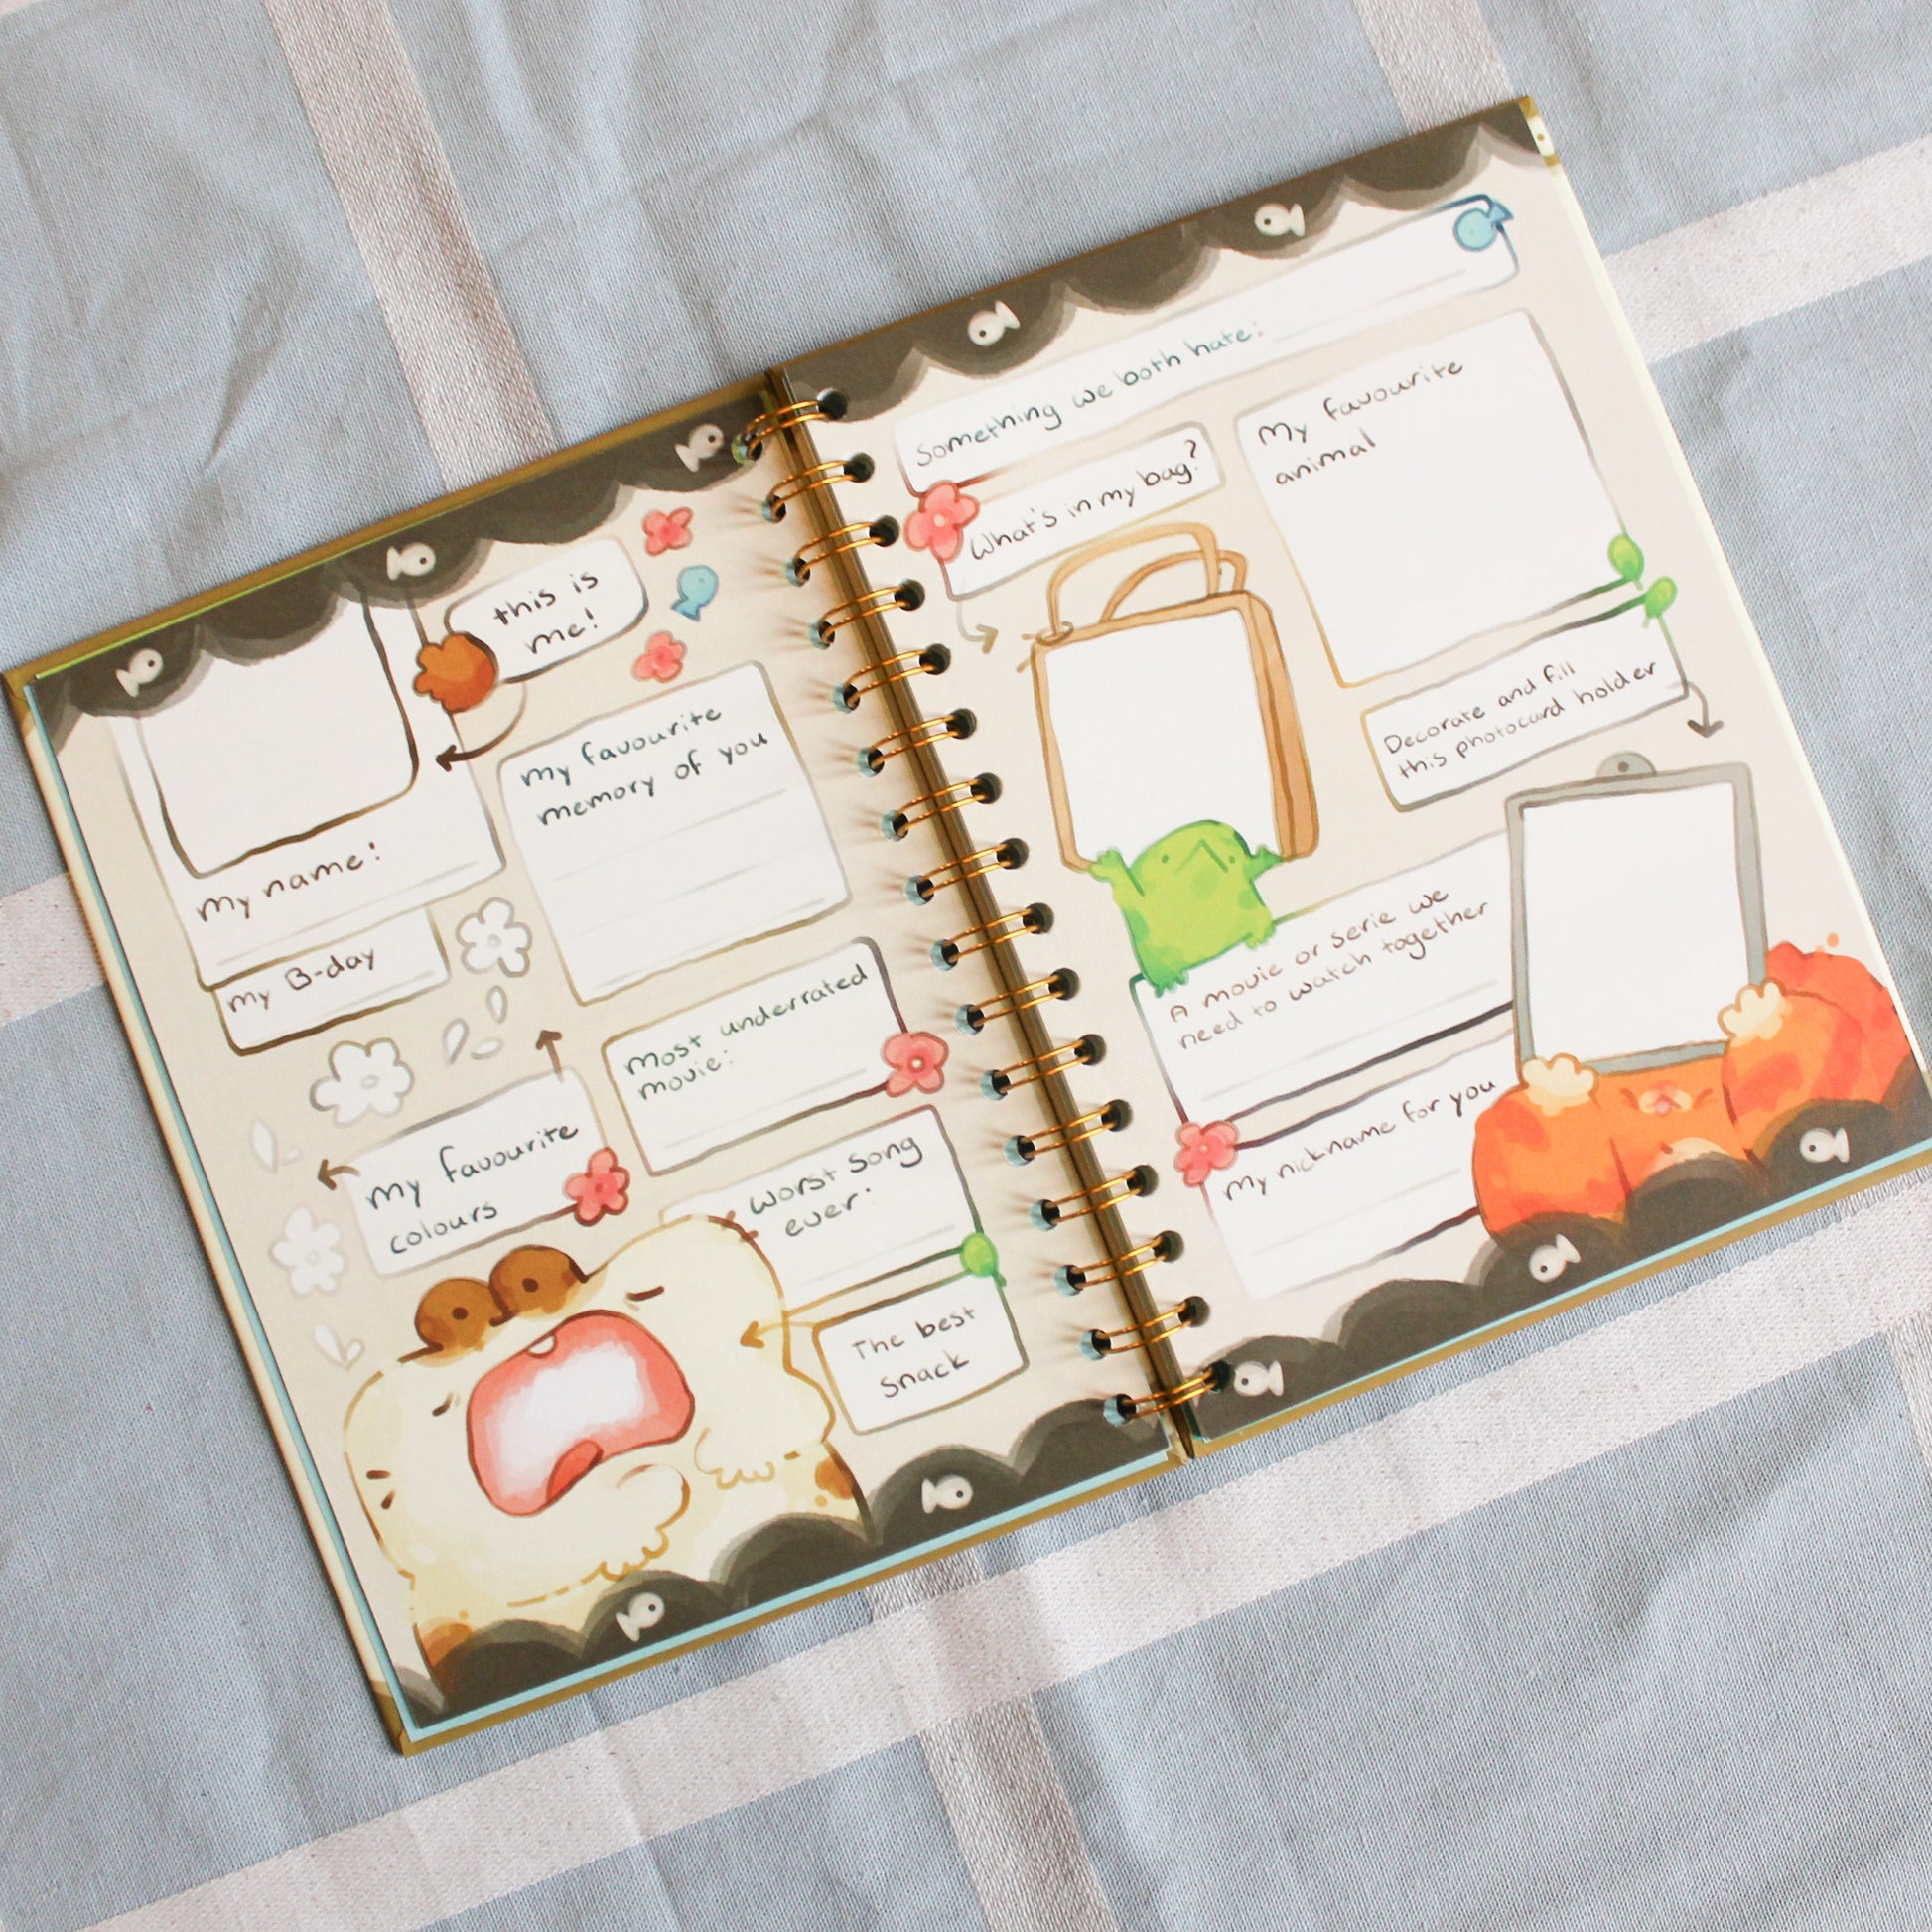 this is
me!
My name:
My B-day
My favourite
memory of you
Most underrated
movie:
My favourite
colours
Worst song
ever:
The best
snack
Something we both hate:
What's in my bag?
My favourite
animal
Decorate and fill
this photocard holder
A movie or serie we
need to watch together
My nickname for you